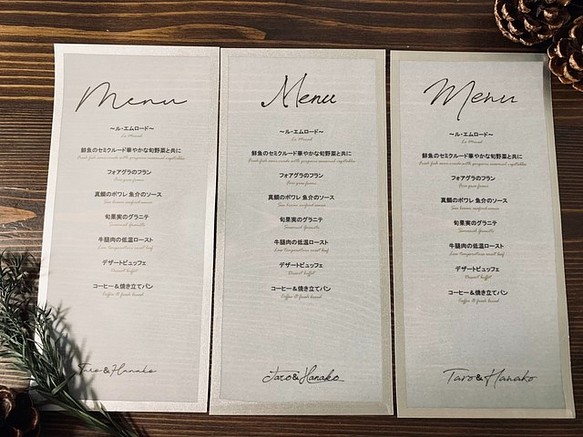 Menu
〜ル・エムロード〜
Le Menu
鮮魚のセミクルード華やかな旬野菜と共に
フォアグラのフラン
Foie gras flan
真鯛のポワレ 魚介のソース
旬果実のグラニテ
Seasonal granite
牛腿肉の低温ロースト
Low temperature roast beef
デザートビュッフェ
Dessert buffet
コーヒー&焼き立てパン
Coffee & fresh bread
Taro&Hanako
Menu
〜ル・エムロード〜
鮮魚のセミクルード華やかな旬野菜と共に
フォアグラのフラン
真鯛のポワレ 魚介のソース
旬果実のグラニテ
牛腿肉の低温ロースト
Low temperature roast beef
デザートビュッフェ
Dessert buffet
コーヒー&焼き立てパン
Coffee & fresh bread
Taro&Hanako
Menu
〜ル・エムロード〜
鮮魚のセミクルード華やかな旬野菜と共に
フォアグラのフラン
真鯛のポワレ 魚介のソース
旬果実のグラニテ
牛腿肉の低温ロースト
Low temperature roast beef
デザートビュッフェ
Dessert buffet
コーヒー&焼き立てパン
Coffee & fresh bread
Taro&Hanako